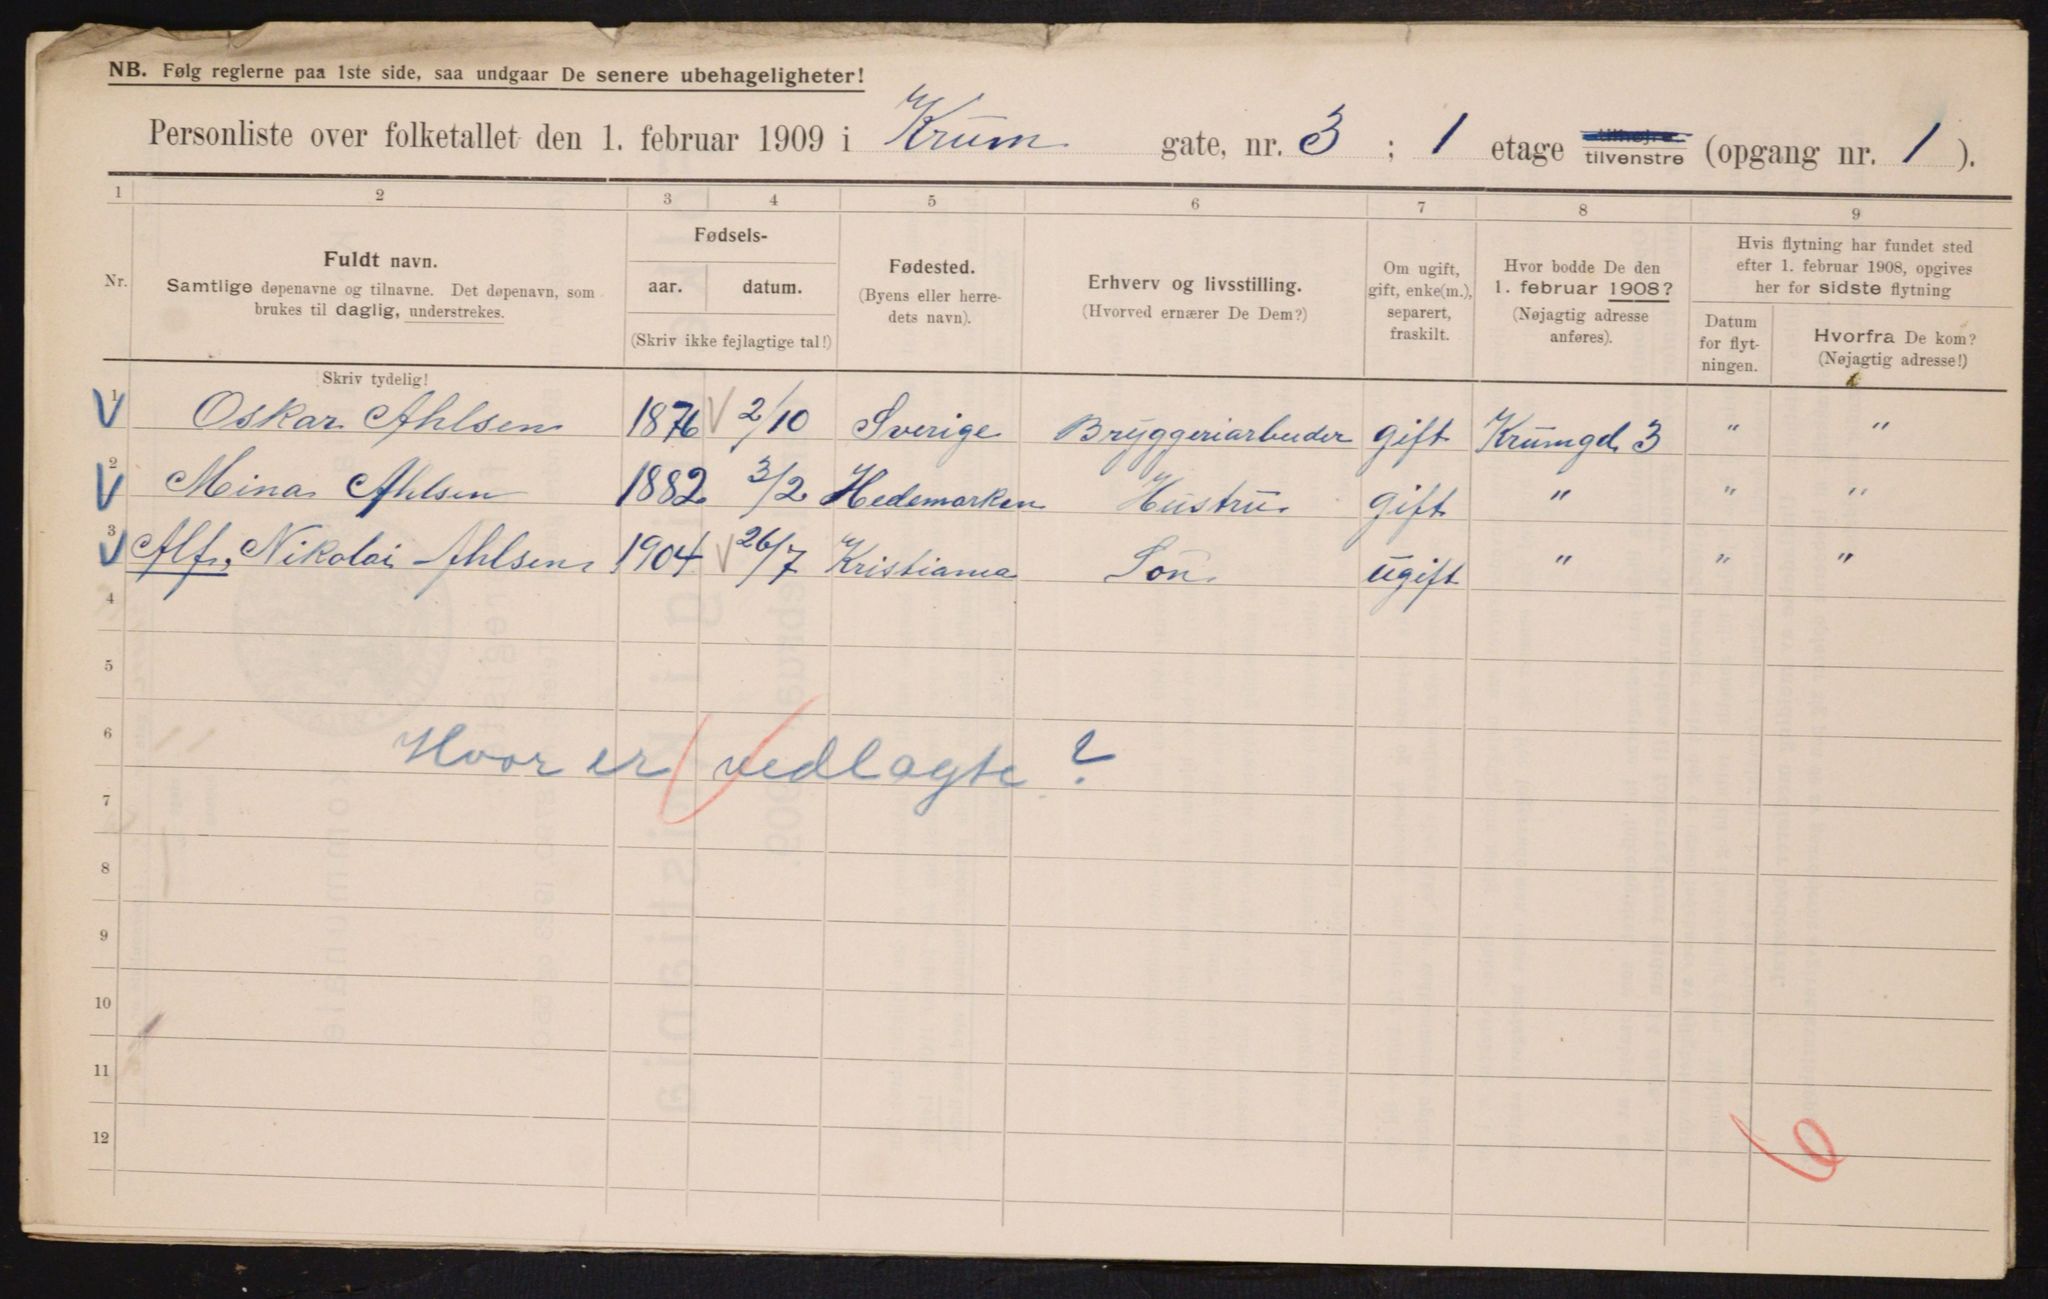 NB. Følg reglerne paa 1ste side, saa undgaar De senere ubehageligheter!
Personliste over folketallet den 1. februar 1909 i Krum gate, nr. 3 ; 1 etage tilhøjre tilvenstre (opgang nr. 1 ).
1 2 3 4 5 6 7 8 9
Nr.
Fuldt navn.
Samtlige døpenavne og tilnavne. Det døpenavn, som
brukes til daglig, understrekes.
Fødsels-
aar. datum.
(Skriv ikke fejlagtige tal!)
Fødested.
(Byens eller herre-
dets navn).
Erhverv og livsstilling.
(Hvorved ernærer De Dem?)
Om ugift,
gift, enke(m.),
separert,
fraskilt.
Hvor bodde De den
1. februar 1908?
(Nøjagtig adresse
anføres).
Hvis flytning har fundet sted
efter 1. februar 1908, opgives
her for sidste flytning
Datum
for flyt-
ningen.
Hvorfra De kom?
(Nøjagtig adresse!)
Skriv tydelig!
1 Oskar Ahlsen 1876 2/10 Sverige Bryggeriarbeider gift Krumgd 3 " "
2 Mina Ahlsen 1882 3/2 Hedemarken Hustru gift " " "
3 Alf, Nikolai Ahlsen 1904 26/7 Kristiania Søn ugift " " "
4
5
6
Hvor er vedlagte ?
7
8
9
10
11
12
6